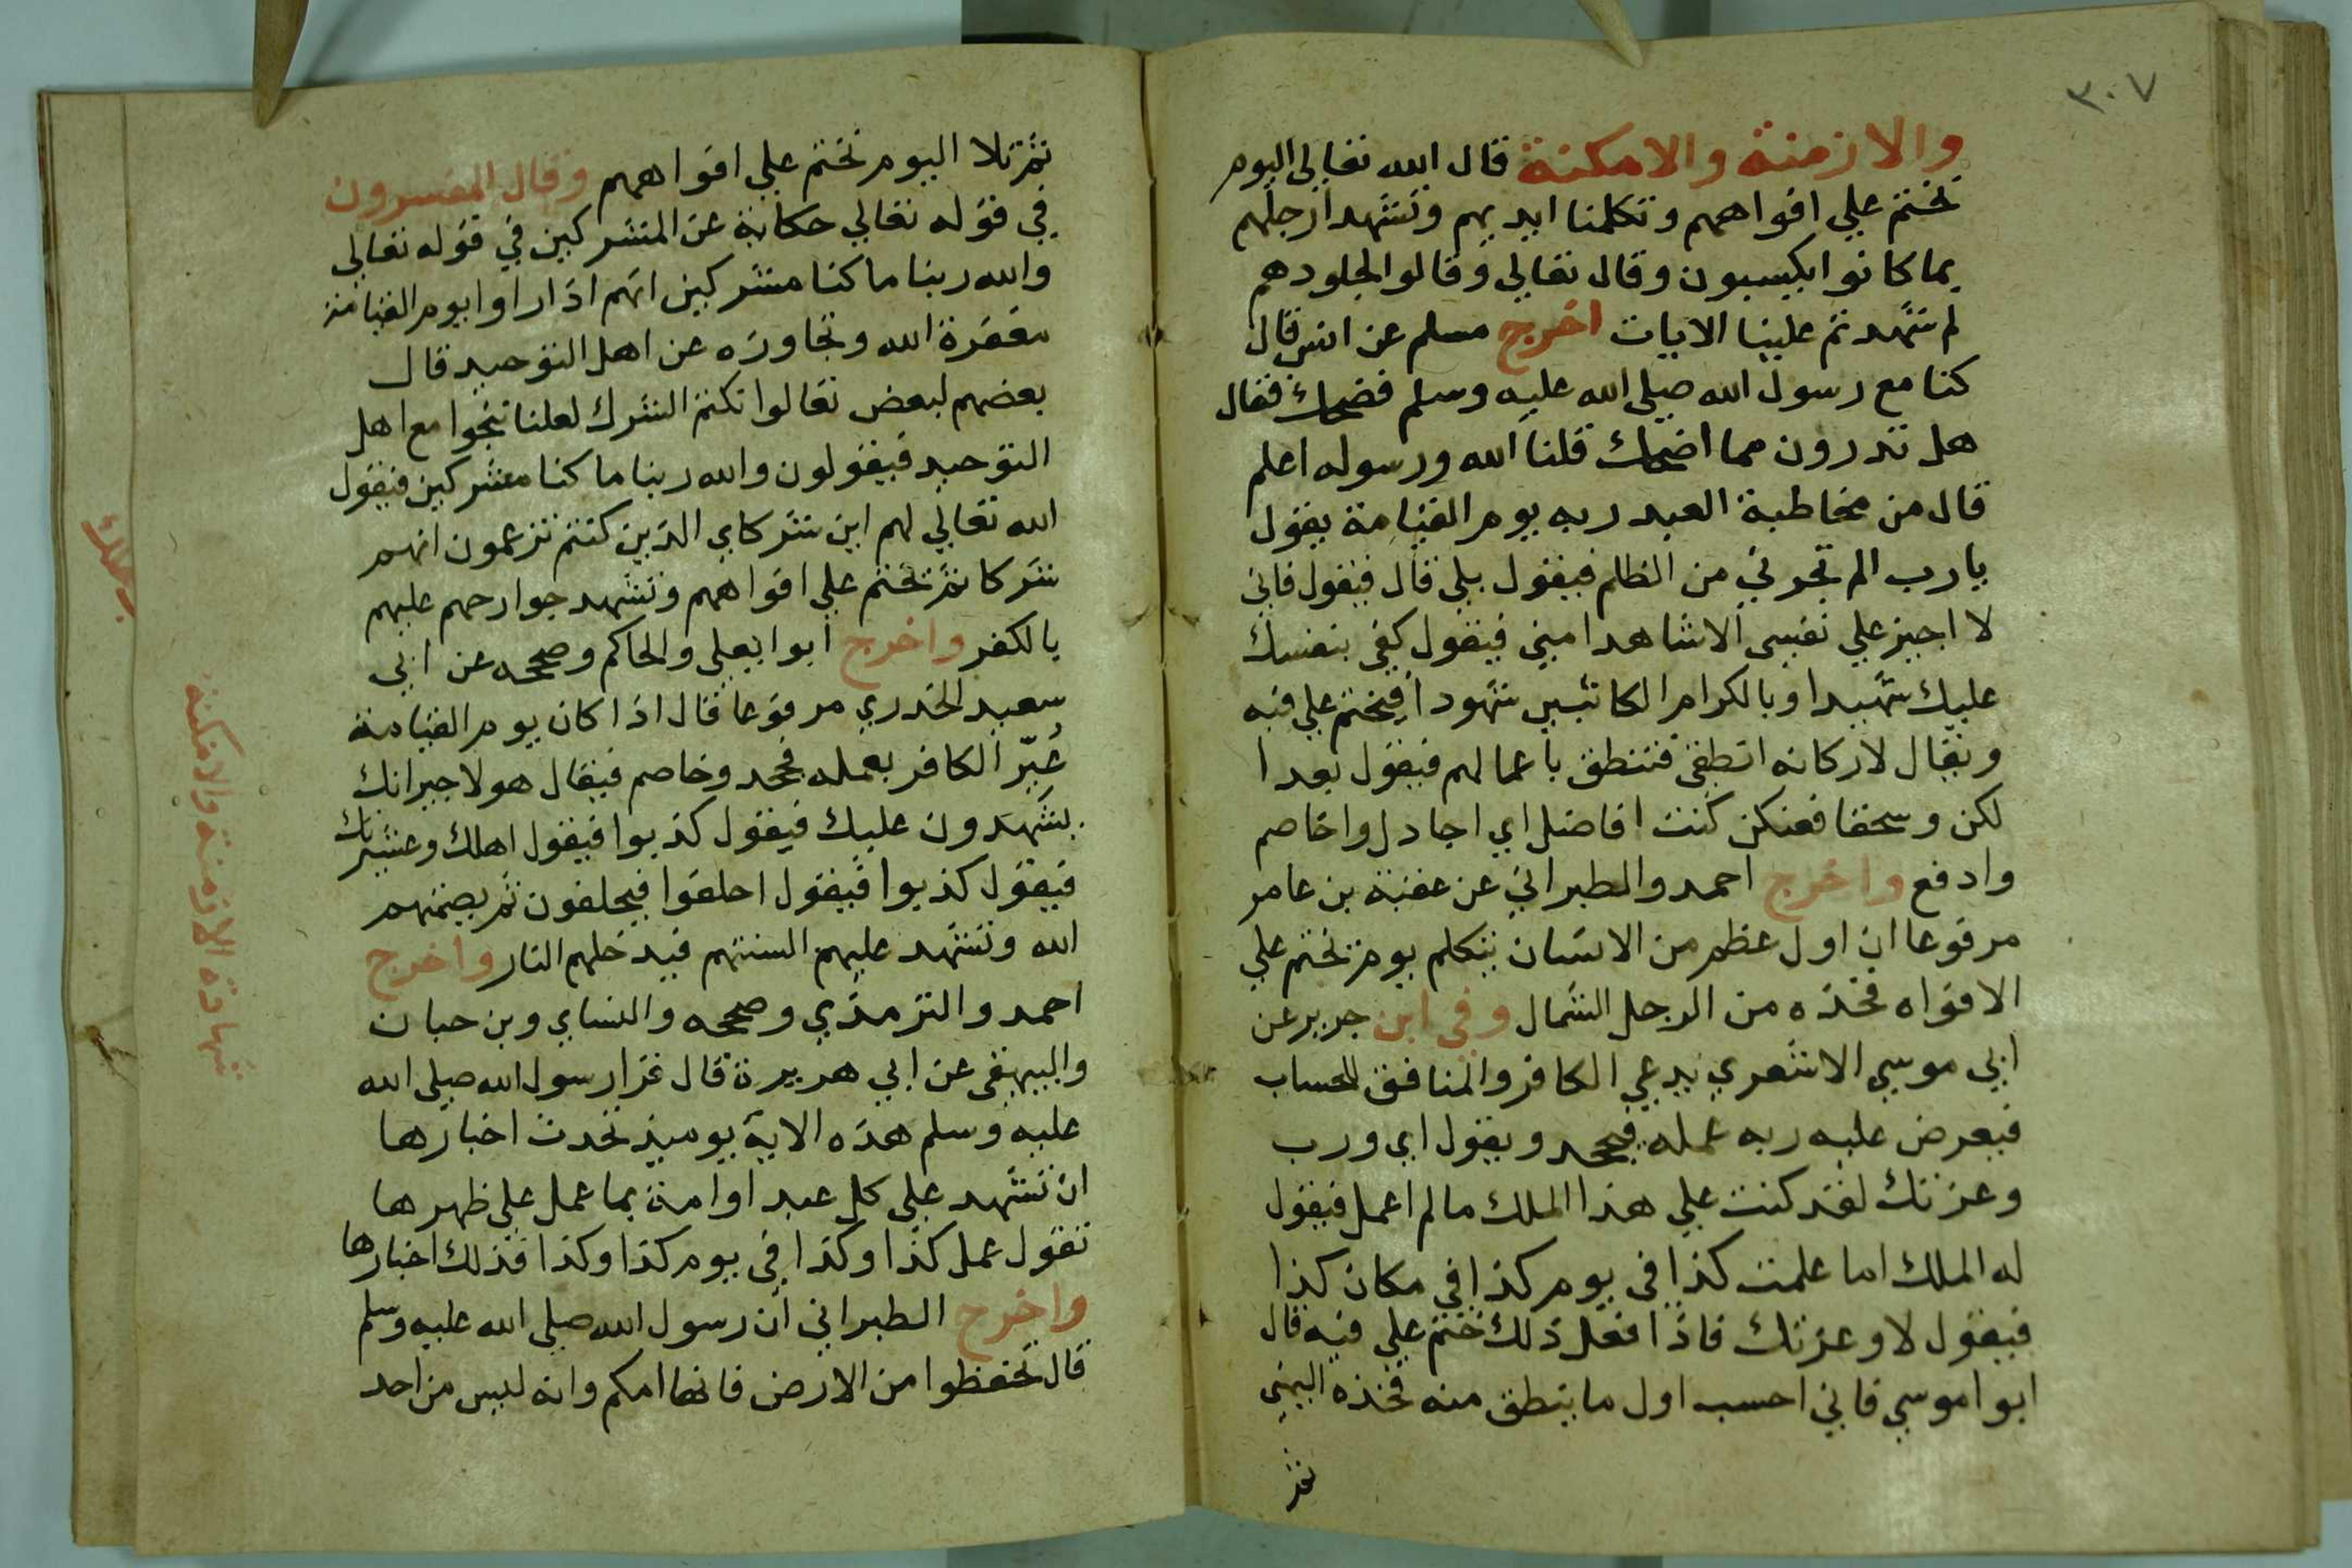 ٣٠٧
والازمنة والامكنة قال الله تعالى اليوم
نختم علي افواههم وتكلمنا ايديهم وتشهد ارجلهم
بما كانوا يكسبون وقال تعالي وقالوا لجلودهم
لم شهدتم علينا الايات اخرج مسلم عن انس قال
كنا مع رسول الله صلي الله عليه وسلم فضحك فقال
هل تدرون مما اضحك قلنا الله ورسوله اعلم
قال من مخاطبة العبد ربه يوم القيامة يقول
يارب الم تجرني من الظلم فيقول بلي قال فيقول فاني
لا اجيز علي نفسي الا شاهدا مني فيقول كفي بنفسك
عليك شهيدا وبالكرام الكاتبين شهودا فيختم علي فيه
ويقال لاركانه انطقي فتنطق باعمالهم فيقول بعدا
لكن وسحقا فعنكن كنت افاضل اي اجادل واخاصم
وادفع واخرج احمد والطبراني عن عقبة بن عامر
مرفوعا ان اول عظم من الانسان يتكلم يوم نختم علي
الافواه فخذه من الرجل الشمال وفي ابن جرير عن
ابي موسي الاشعري يدعي الكافر والمنافق للحساب
فيعرض عليه ربه عمله فيجحد ويقول اي ورب
وعزتك لقد كنت علي هذا الملك مالم اعمل فيقول
له الملك اما علمت كذا في يوم كذا في مكان كذا
فيقول لا وعزتك فاذا فعل ذلك ختم علي فيه قال
ابوا موسي فاني احسب اول ما ينطق منه فخذه اليمني
ثم
ثم تلا اليوم نختم علي افواههم وقال المفسرون
في قوله تعالي حكاية عن المشركين في قوله تعالي
والله ربنا ما كنا مشركين انهم اذا راوا يوم القيامة
مغفرة الله وتجاوزه عن اهل التوحيد قال
بعضهم لبعض تعالوا نكتم الشرك لعلنا ننجوا مع اهل
التوحيد فيقولون والله ربنا ما كنا مشركين فيقول
الله تعالي لهم اين شركاي الذين كنتم تزعمون انهم
شركا ثم نختم علي افواههم وتشهد جوارحهم عليهم
بالكفر واخرج ابوا يعلي والحاكم وصححه عن ابي
سعيد الخدري مرفوعا قال اذا كان يوم القيامة
عُيّر الكافر بعمله فجحد وخاصم فيقال هولا جيرانك
يشهدون عليك فيقول كذبوا فيقول اهلك وعشيرتك
فيقول كذبوا فيقول احلفوا فيحلفون ثم يصمتهم
الله وتشهد عليهم السنتهم فيدخلهم النار واخرج
احمد والترمذي وصححه والنساي وبن حبان
والبيهقي عن ابي هريرة قال قرا رسول الله صلي الله
عليه وسلم هذه الاية يوميذ تحدث اخبارها
ان تشهد علي كل عبد او امة بما عمل علي ظهرها
تقول عمل كذا وكذا في يوم كذا وكذا فذلك اخبارها
واخرج الطبراني ان رسول الله صلي الله عليه وسلم
قال تحفظوا من الارض فانها امكم وانه ليس من احد
شهادة الازمنة والامكنة